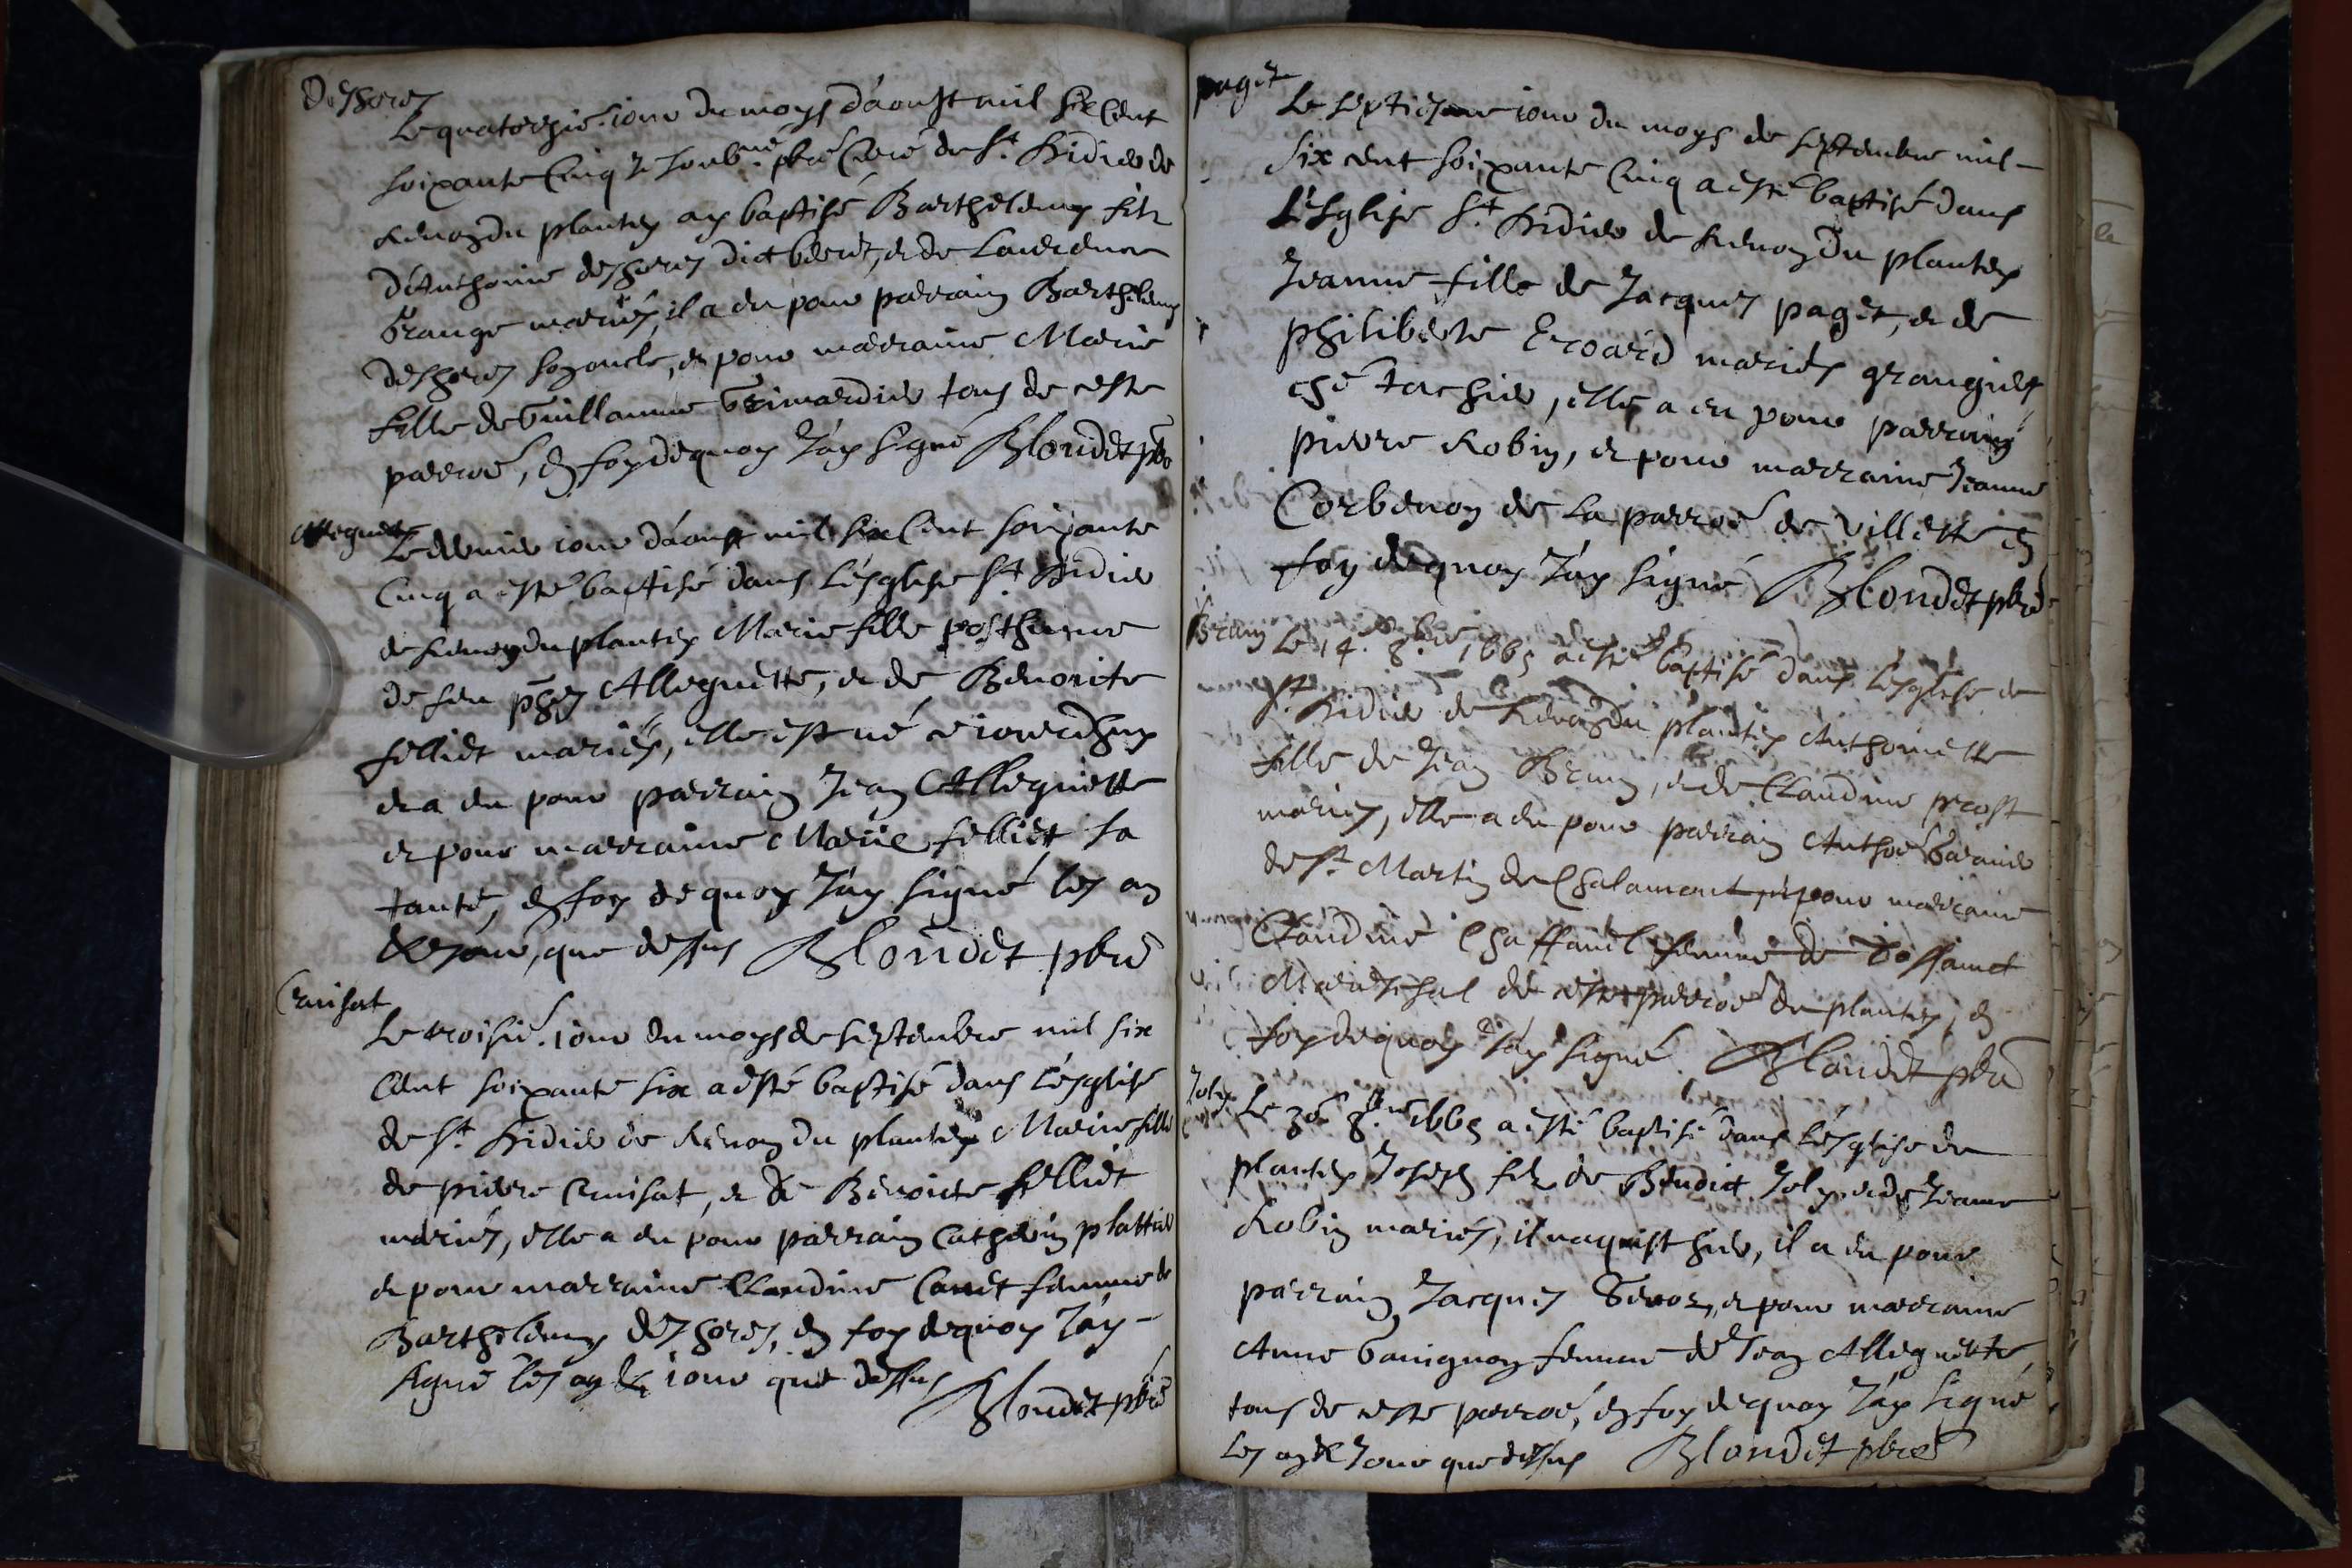 Deshores
Le quatorziē. jour du moys d'aoust mil six cent
soixante cinq Je soubné. pbrē Curé de St. Didier de
Renon du plantey ay baptisé Barthelemy filz
d'Anthoine deshores dict , et de Laurence
Grange mariés, il a eu pour parrain Barthelemy
deshores son oncle, et pour marraine Marie
fille de Guillaume Grimardier tous de ceste
parroē, en foy de quoy J'ay signé Blondet pbr
Alleguette
Le dernier jour d'aoust mil six Cent soixante
Cinq a esté baptisé dans L'ésglise St Didier
de Renon du plantey Marie fille posthume
de feu Alleguette, et de Benoite
felliet mariés, elle est né ce jourdhuy
et a eu pour parrain Jean Alleguette
et pour marraine Marie felliet sa
tante, en foy de quoy J'ay signé les an
et jour, que dessus Blondet pbrē
Cruisat
Le troisiē. jour du moys de septembre mil six
Cent soixante six a esté baptisé dans L'ésglise
de St. Didier de Renon du plantey Marie fille
de pierre Cruisat, et de Benoite felliet
mariés, elle a eu pour parrain Catherin plattier
et pour marraine Claudine Canet femme de
Barthelemy deshores, en foy de quoy J'ay -
signé les an & jour que dessus Blondet pbrē
paget
Le septiesme jour du moys de septembre mil -
six cent soixante Cinq a esté baptisé dans
L'ésglise St. Didier de Renon Du plantey
Jeanne fille de Jacques paget, et de
philiberte Eroard mariés grangiers
ché tachier, elle a eu pour parrain
pierre Robin, et pour marraine Jeanne
Corbenon de La parroē de Villette en
foy de quoy J'ay signé Blondet pbrē
Brun
Le 14. 8.bre 1665 a esté baptisé dans L'ésglise de
St. Didier de Renon du plantey Anthoinette
fille de Jean Brun, et de Claudine prost
mariés, elle a eu pour parrain Anthoē
de St. Martin de Chalamont et pour marraine
Claudine Chaffanel femme de Toffanet
Mareschal de ceste parroē du plantey, en
foy de quoy J'ay signé Blondet pbrē
Joly
Le 30 8.bre 1665 a esté baptisé dans L'ésglise du
plantey Joseph filz de Benedict Joly et de Jeanne
Robin mariés, il naquist hier, il a eu pour
parrain Jacques , et pour marraine
Anne Ganignon femme de Jean Alleguette,
tous de ceste parroē, en foy de quoy J'ay signé
les an & Jour que dessus Blondet pbrē